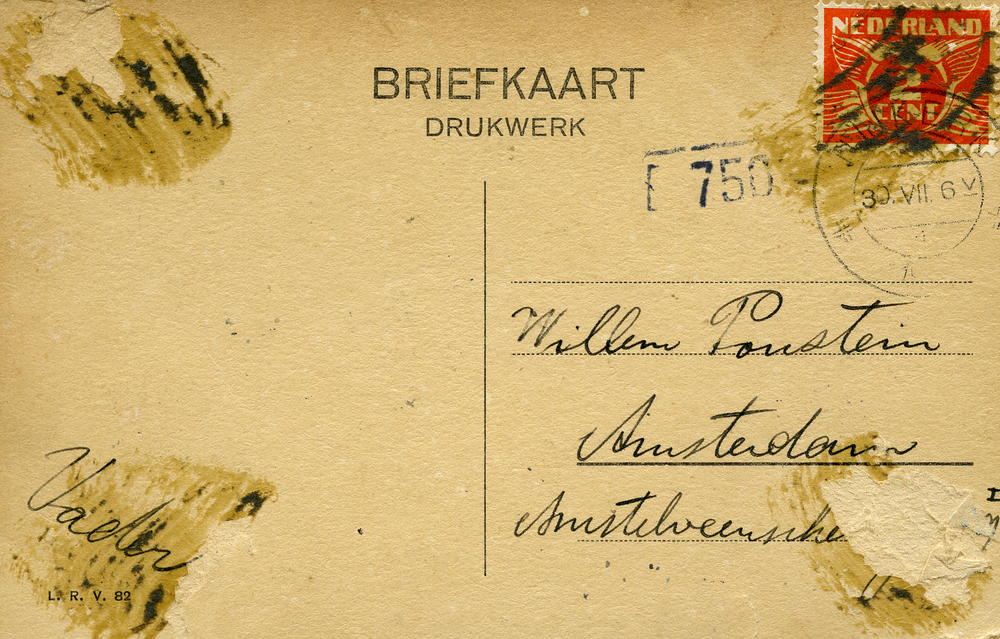 BRIEFKAART
DRUKWERK
NEDERLAND
2
CENT
750
30. VII. 6 V
Willem Ponstein
Amsterdam
Amstelveensche
Vader
L. R. V. 82